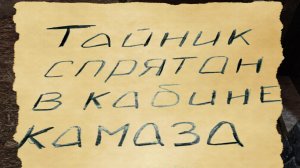 Тайник
спрятан
в кабине
КАМАЗА